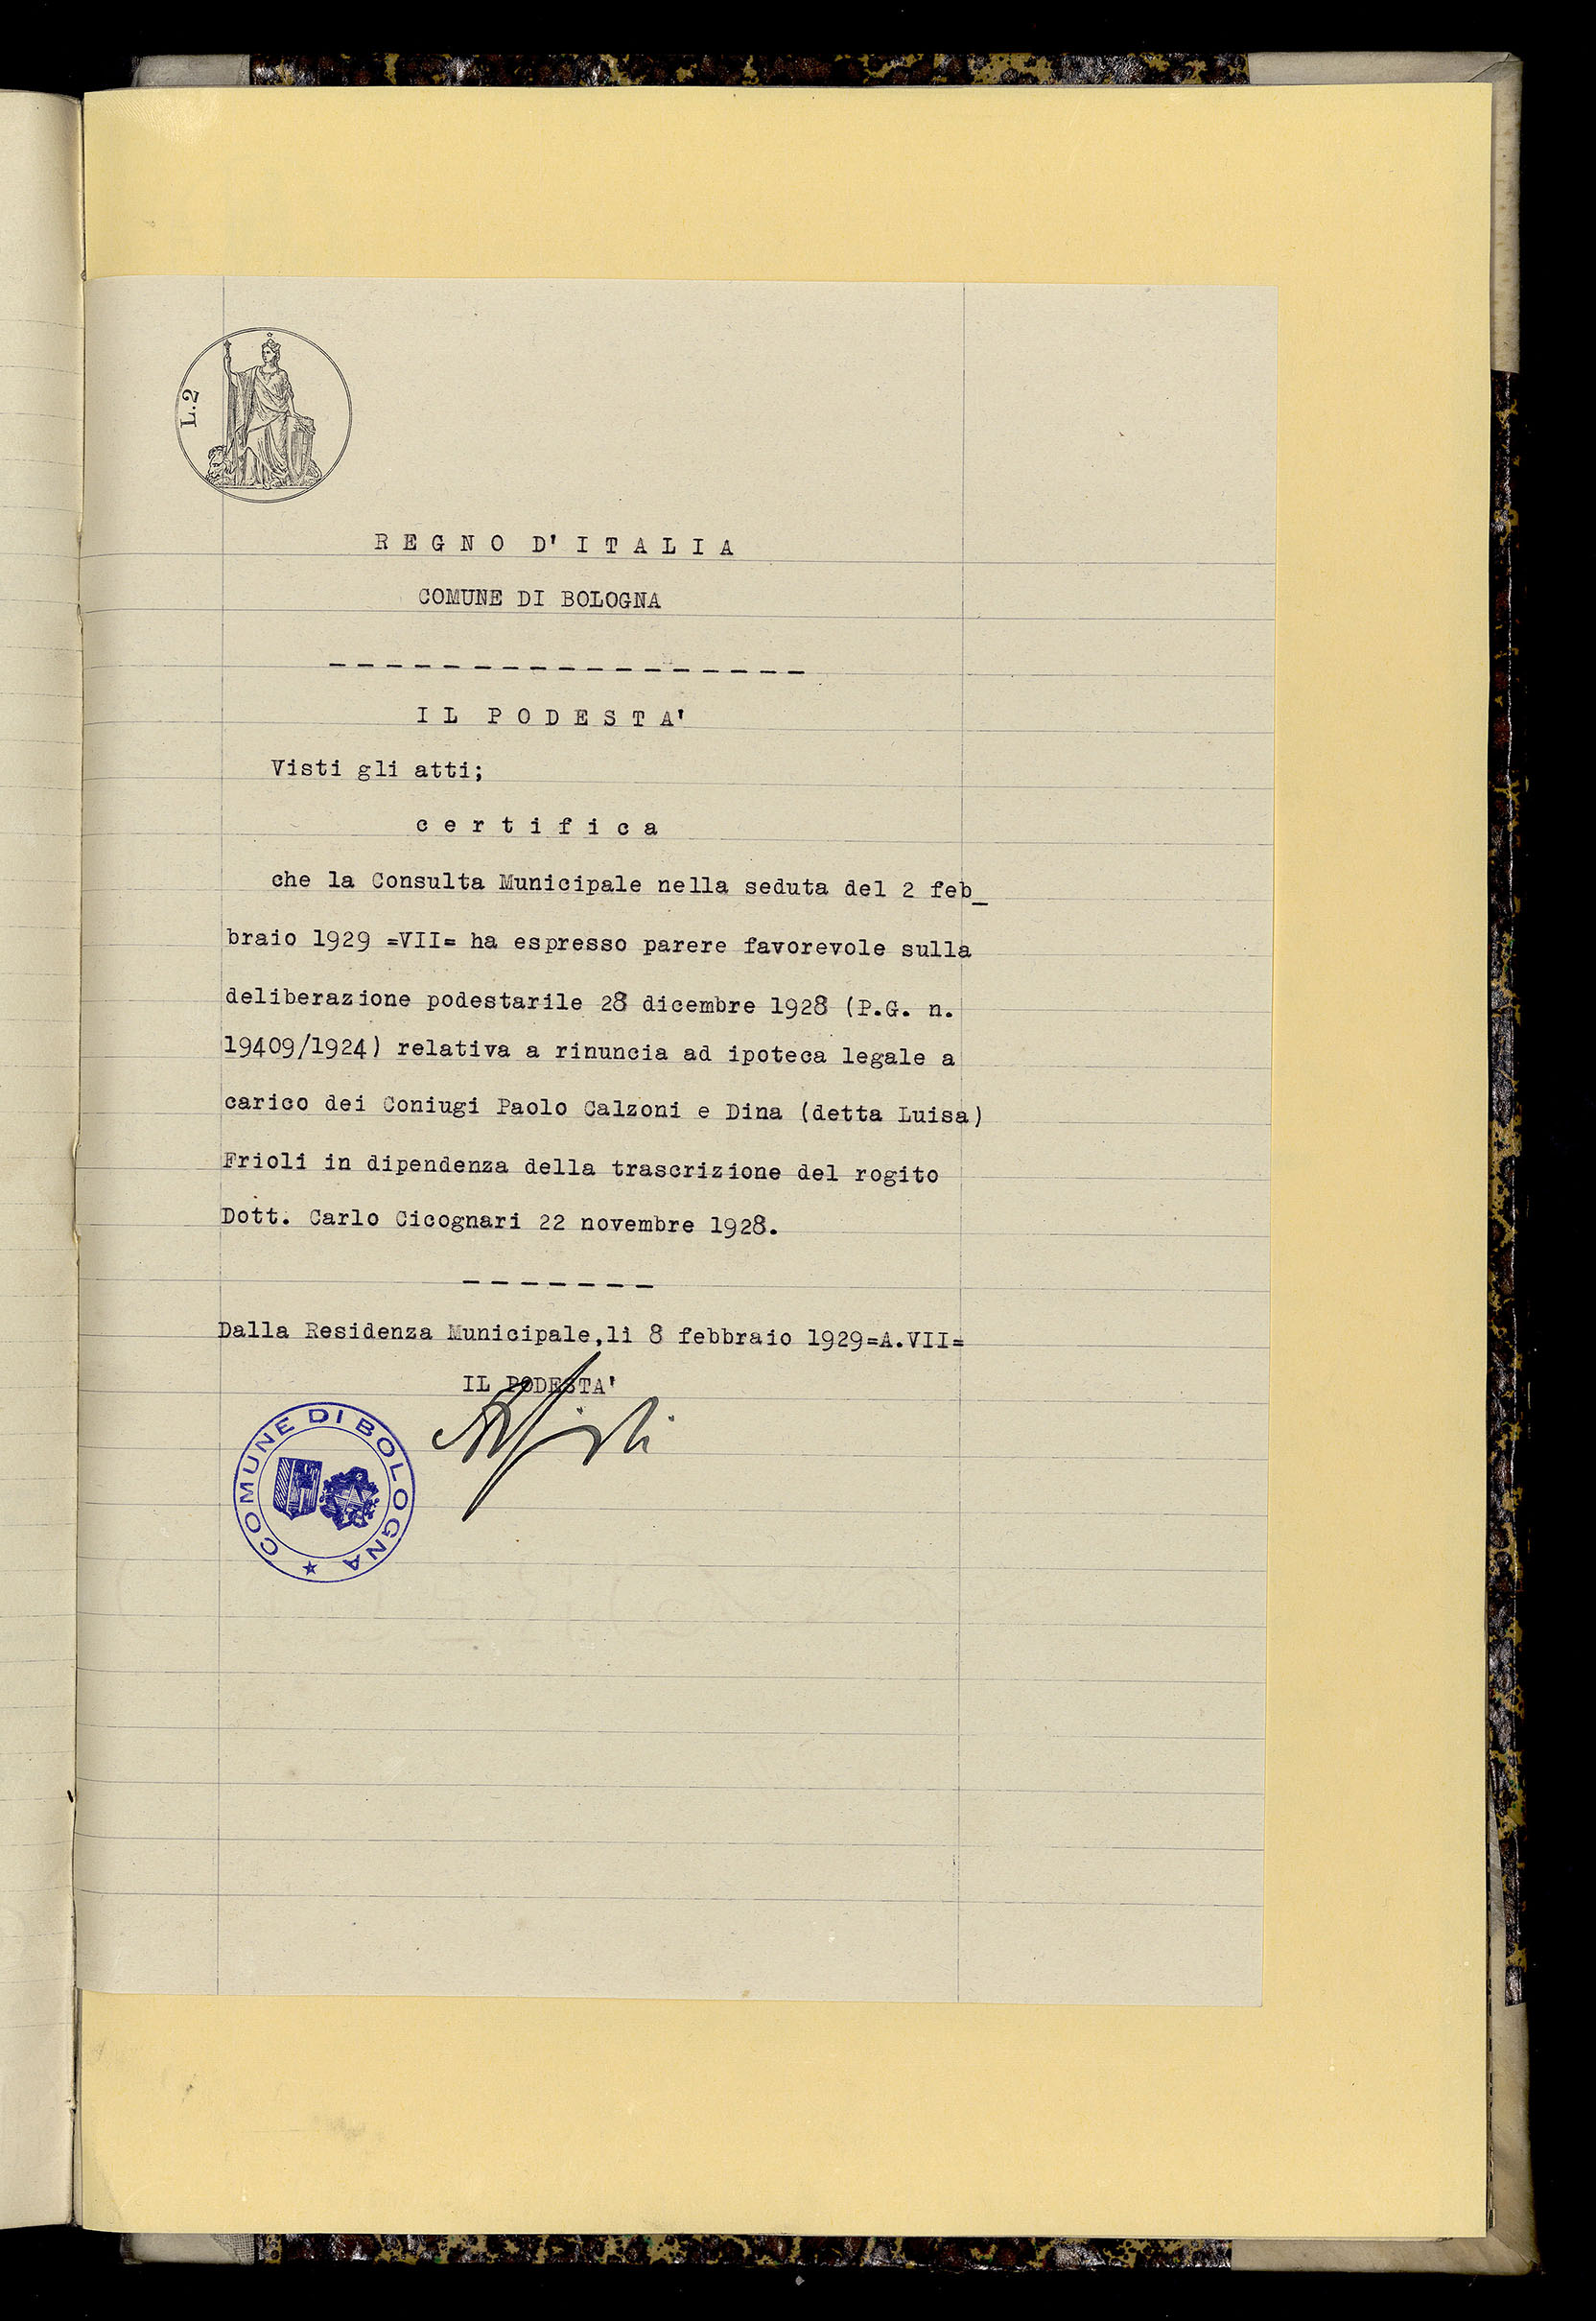 L.2
REGNO D'ITALIA
COMUNE DI BOLOGNA
------------------
IL PODESTA'
Visti gli atti;
certifica
che la Consulta Municipale nella seduta del 2 feb_
braio 1929 =VII= ha espresso parere favorevole sulla
deliberazione podestarile 28 dicembre 1928 (P.G. n.
19409/1924) relativa a rinuncia ad ipoteca legale a
carico dei Coniugi Paolo Calzoni e Dina (detta Luisa)
Frioli in dipendenza della trascrizione del rogito
Dott. Carlo Cicognari 22 novembre 1928.
-------
Dalla Residenza Municipale,li 8 febbraio 1929=A.VII=
IL PODESTA'
COMUNE DI BOLOGNA